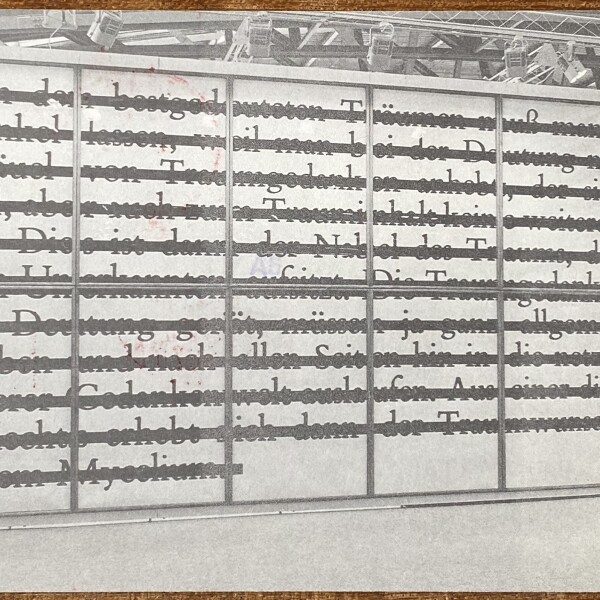 n den bestgedeuteten Träumen muß man
nkel lassen, weil man bei der Deutung m
äuel von Traumgedanken anhebt, der si
, aber auch zum Trauminhalt keine weiter
Dies ist dann der Nabel des Traums, d
Unerkannten aufsitzt. Die Traumgedank
Deutung gerät, müssen ja ganz allgem
ben und nach allen Seiten hin in die netz
rer Gedankenwelt auslaufen. Aus einer di
echts erhebt sich dann der Traumwunsc
em Mycelium.